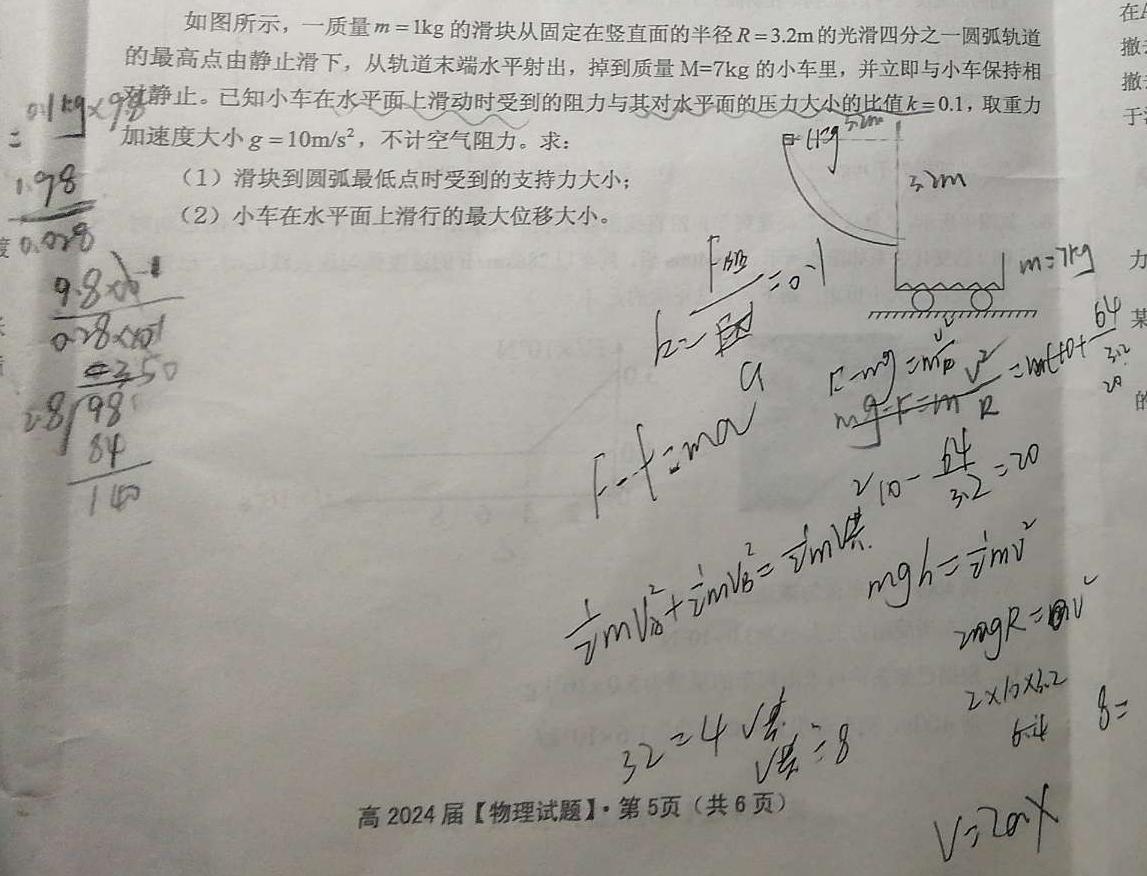 如图所示，一质量m=1kg的滑块从固定在竖直面的半径R=3.2m的光滑四分之一圆弧轨道
的最高点由静止滑下，从轨道末端水平射出，掉到质量M=7kg的小车里，并立即与小车保持相
对静止。已知小车在水平面上滑动时受到的阻力与其对水平面的压力大小的比值k=0.1，取重力
加速度大小g=10m/s²，不计空气阻力。求：
（1）滑块到圆弧最低点时受到的支持力大小；
（2）小车在水平面上滑行的最大位移大小。
0.1kg×9.8
1.98
0.028
9.8×10⁻¹
0.28×10⁻¹
=350
2.8
98
84
140
1kg
3.2m
3.2m
m=7kg
=0.1
F-f=ma
a
F-mg=m
mg-F=m v²/R
64/3.2
20
10-64/3.2=20
½mv²+½mvB²=½mv共²
mgh=½mv²
2mgR=mv²
2×10×3.2
64
8=
32=4v共
v共=8
V=2aX
高2024届【物理试题】·第5页（共6页）
在
撤
撤
于
力
某
的